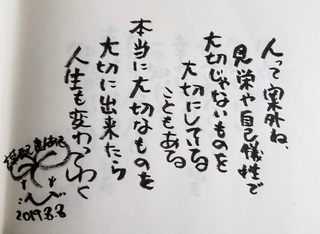 人って案外ね、
見栄や自己犠牲で
大切じゃないものを
大切にしてる
こともある
本当に大切なものを
大切に出来たら
人生も変わってゆく
2019.8.8